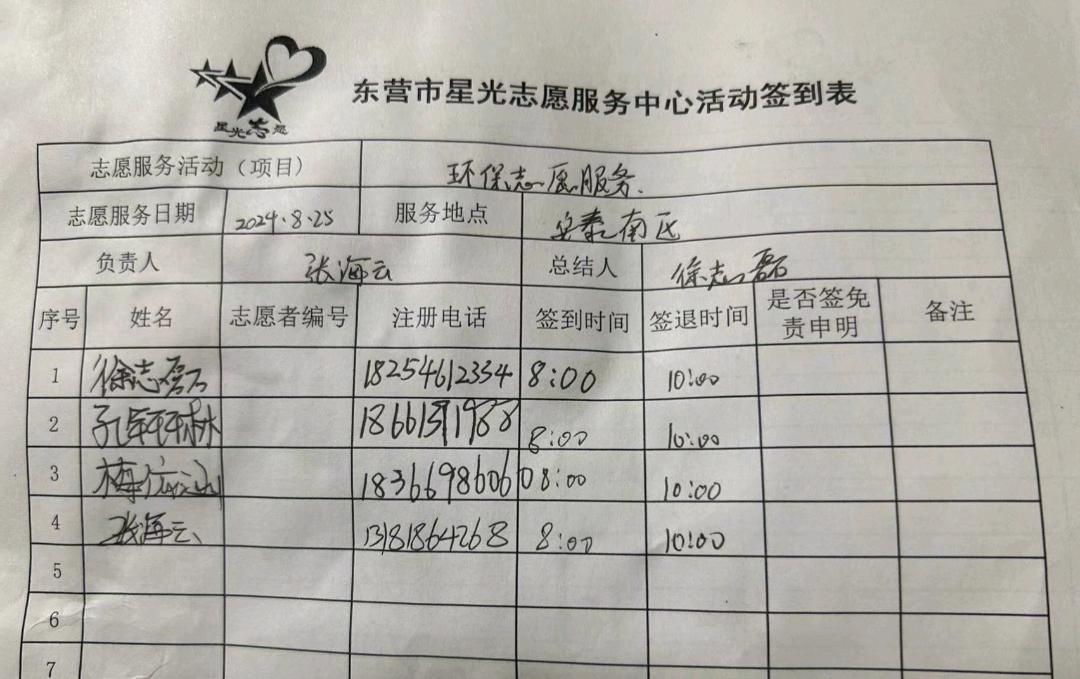 星光志愿
东营市星光志愿服务中心活动签到表
志愿服务活动（项目） 环保志愿服务.
志愿服务日期 2024.8.25 服务地点 安泰南区
负责人 张海云 总结人 徐志磊
序号 姓名 志愿者编号 注册电话 签到时间 签退时间 是否签免责申明 备注
1 徐志磊 18254612334 8:00 10:00
2 8:00 10:00
3 梅 18366986060 8:00 10:00
4 张海云 13181864268 8:00 10:00
5
6
7